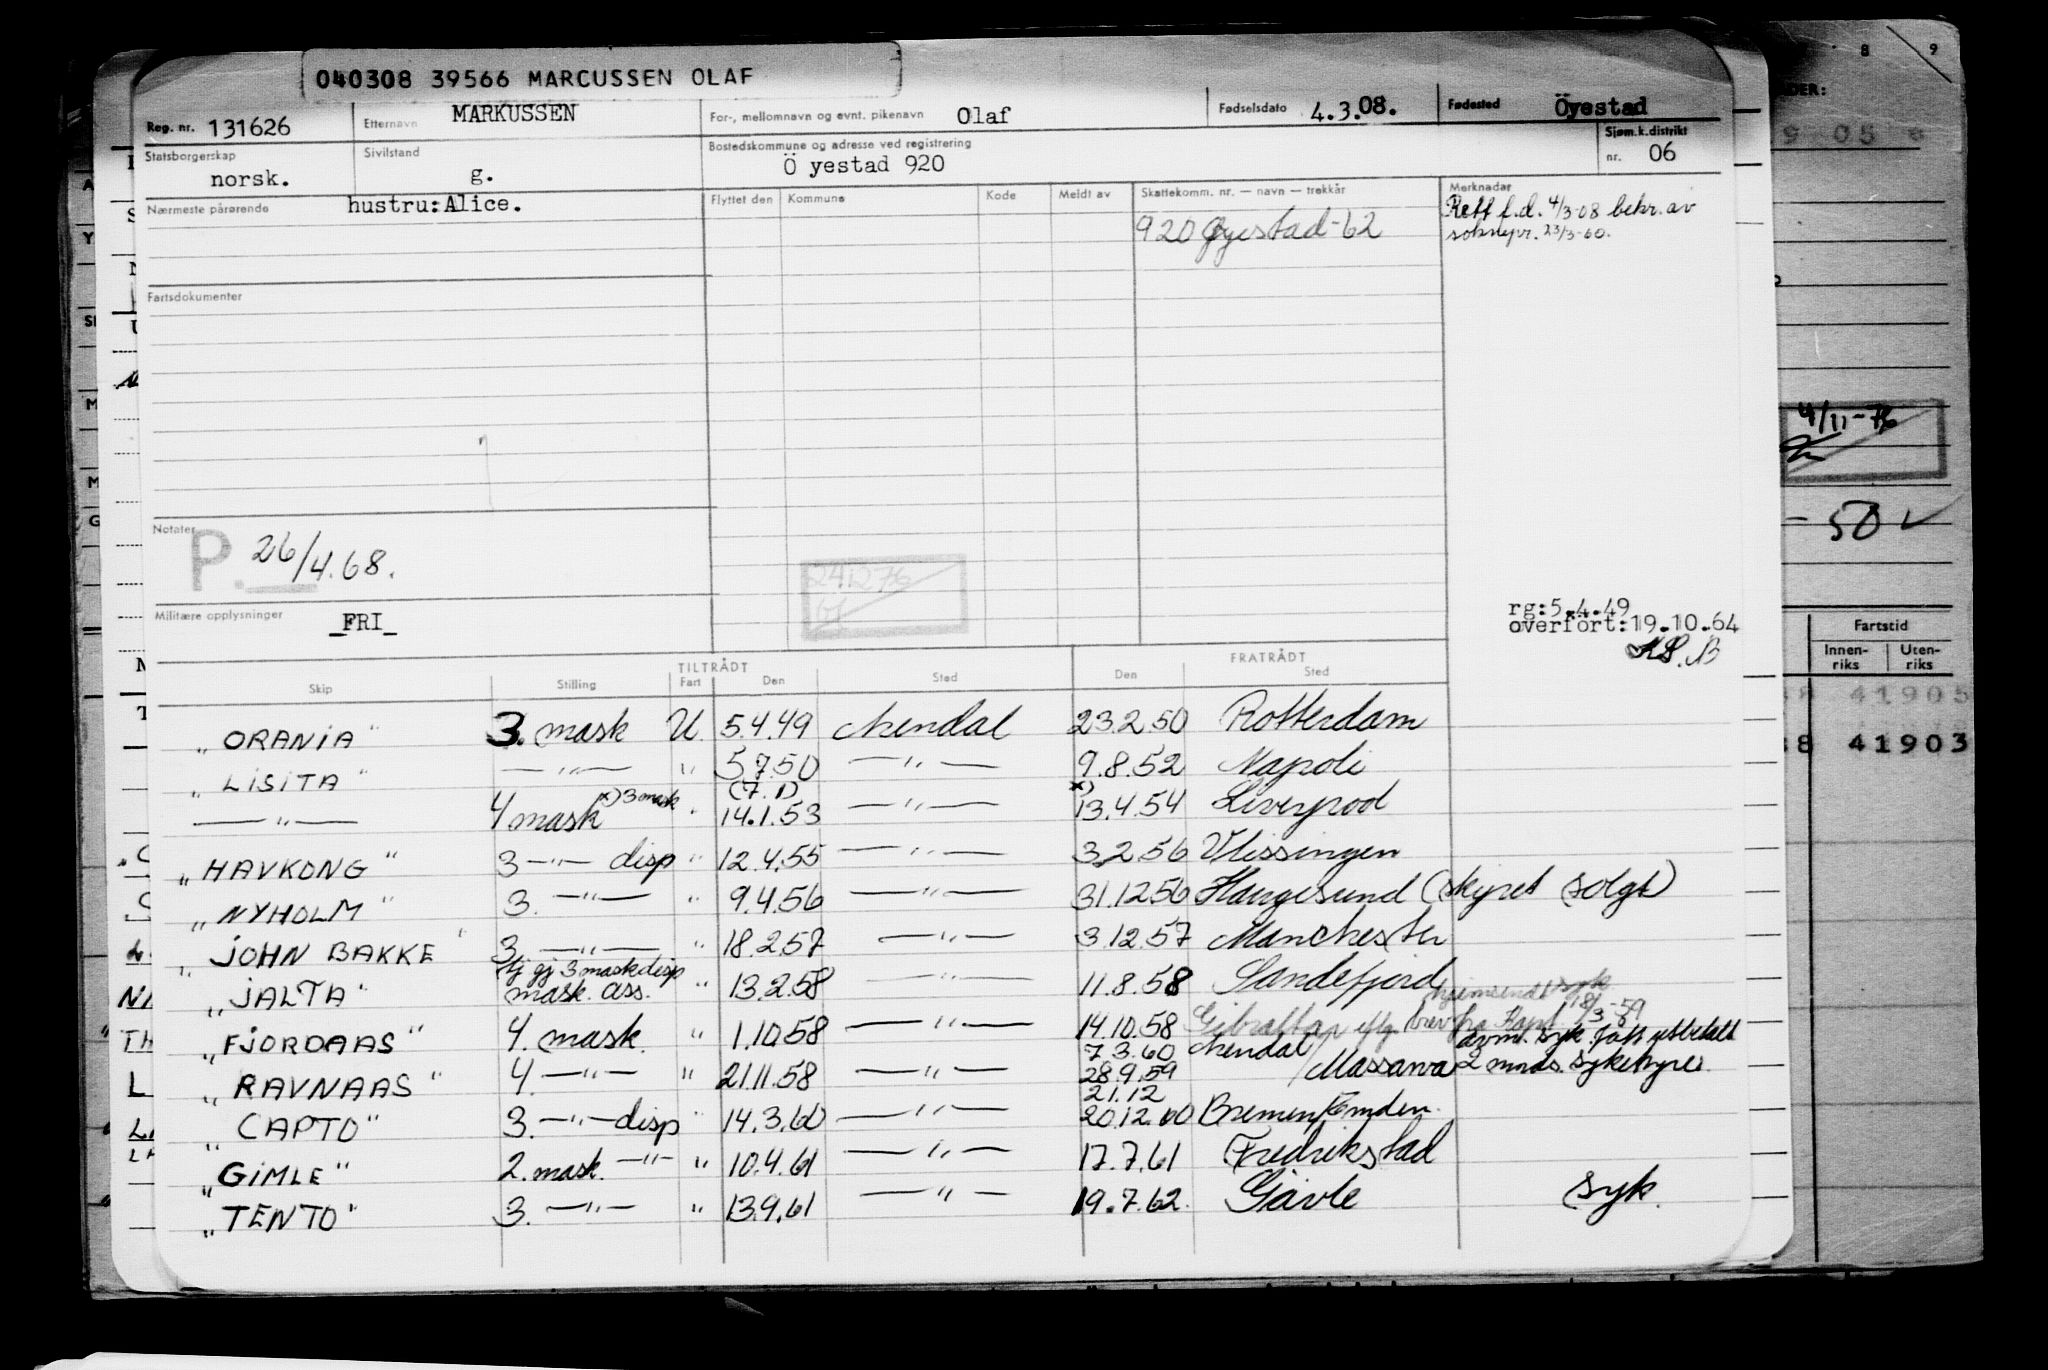 040308 39566 MARCUSSEN OLAF
Reg. nr. 131626 Etternavn MARKUSSEN For-, mellomnavn og evnt. pikenavn Olaf Fødselsdato 4.3.08. Fødested Öyestad
Statsborgerskap norsk. Sivilstand g. Bostedskommune og adresse ved registrering Ö yestad 920 Sjøm.k.distrikt nr. 06
Nærmeste pårørende hustru:Alice. Flyttet den Kommune Kode Meldt av Skattekomm. nr. — navn — trekkår Merknader
920 Øyestad-62 Rett f.d. 4/3-08 bekr. av
soknepr. 23/3-60.
Fartsdokumenter
Notater P. 26/4.68.
241276
Militære opplysninger _FRI_
rg:5.4.49
overfört:19.10.64
TILTRÅDT FRATRÅDT
Skip Stilling Fart Den Sted Den Sted
"ORANIA" 3. mask U 5.4.49 Arendal 23.2.50 Rotterdam
"LISITA" —"— " 5.7.50 —"— 9.8.52 Napoli
(7.1)
—"— 4 mask x) 3 mask " 14.1.53 —"— x) 13.4.54 Liverpool
"HAVKONG" 3 —"— disp " 12.4.55 —"— 3.2.56 Vlissingen
"NYHOLM" 3. —"— " 9.4.56 —"— 31.12.56 Haugesund (skipet solgt)
"JOHN BAKKE" 3. —"— " 18.2.57 —"— 3.12.57 Manchester
tj gj 3 mask disp
"JALTA" mask. ass. " 13.2.58 —"— 11.8.58 Sandefjord
hjemsendt syk
"FJORDAAS" 4. mask. " 1.10.58 —"— 14.10.58 Gibraltar iflg brev fra Kapt 18/3-59
7.3.60 Arendal
"RAVNAAS" 4. —"— " 21.11.58 —"— 28.9.59 / Massawa avm. syk. fått utbetalt 2 mnds. sykehyre.
21.12
"CAPTO" 3. —"— disp " 14.3.60 —"— 20.12.60 Bremen/Emden.
"GIMLE" 2. mask. —"— " 10.4.61 —"— 17.7.61 Fredrikstad
"TENTO" 3. —"— " 13.9.61 —"— 19.7.62. Gävle syk.
8 9
DER:
9 05
4/11-76
- 50 ✓
Fartstid
Innen-riks Uten-riks
41905
8 41903